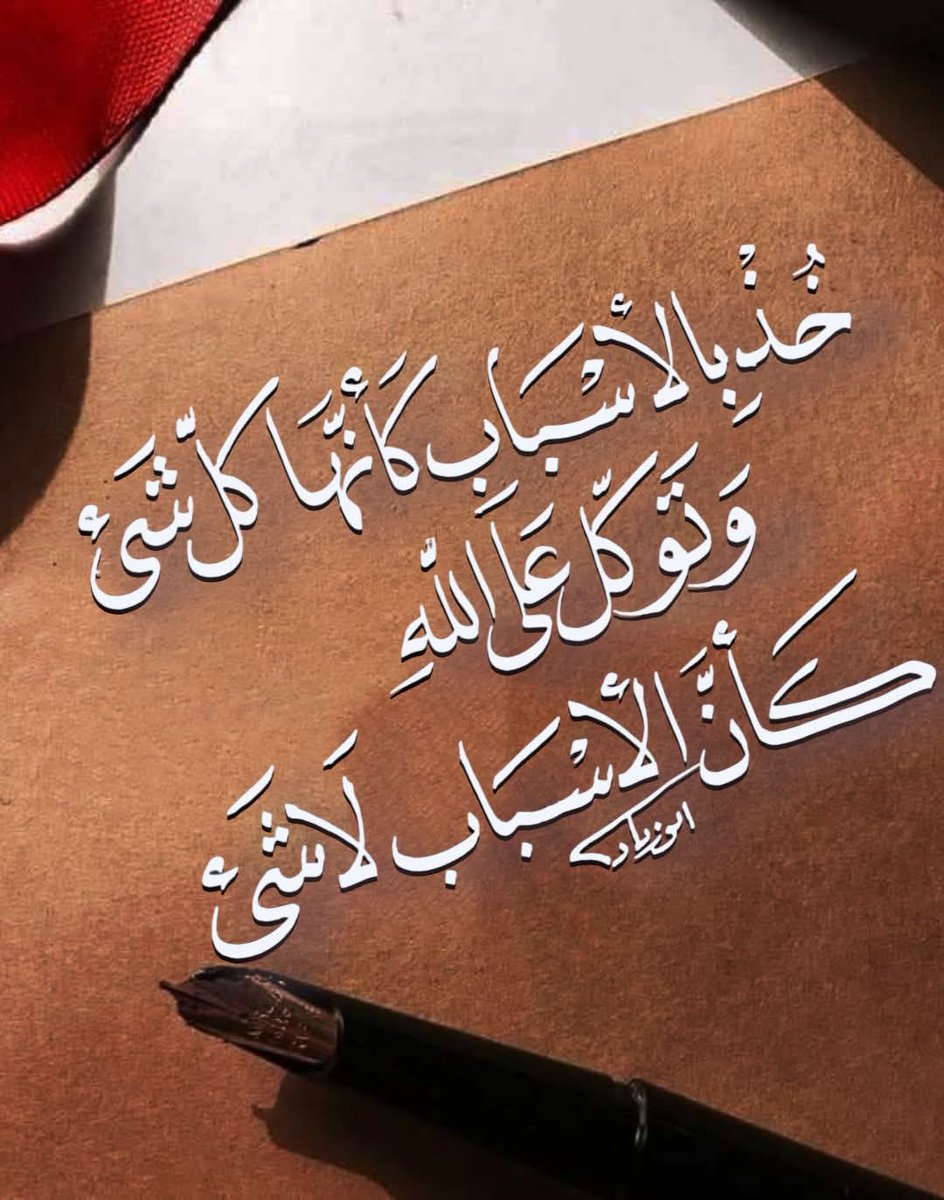 خُذْ بِالأسْبَابِ كَأنَّهَا كلّ شَئ
وَتَوَكّل عَلَى اللّهِ
كَأنَّ الأسْبَاب لَا شَئ
ابوزياد